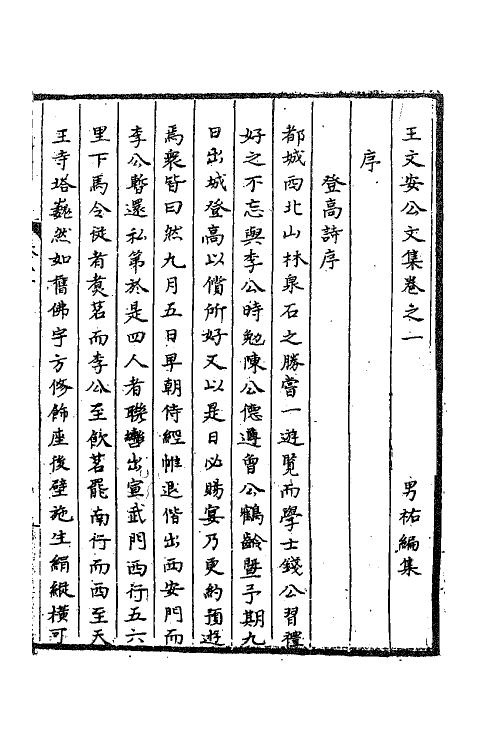 王文安公文集卷之一　男祐編集
序
登高詩序
都城西北山林泉石之勝嘗一遊覽而學士錢公習禮
好之不忘與李公時勉陳公德遵曾公鶴齡暨予期九
日出城登高以償所好又以是日必賜宴乃更約預遊
焉衆皆曰然九月五日早朝侍經帷退偕出西安門而
李公暫還私第於是四人者聯轡出宣武門西行五六
里下馬令徒者煑茗而李公至飲茗罷南行而西至天
王寺塔巍然如舊佛宇方修飾座後壁施生絹縱橫可